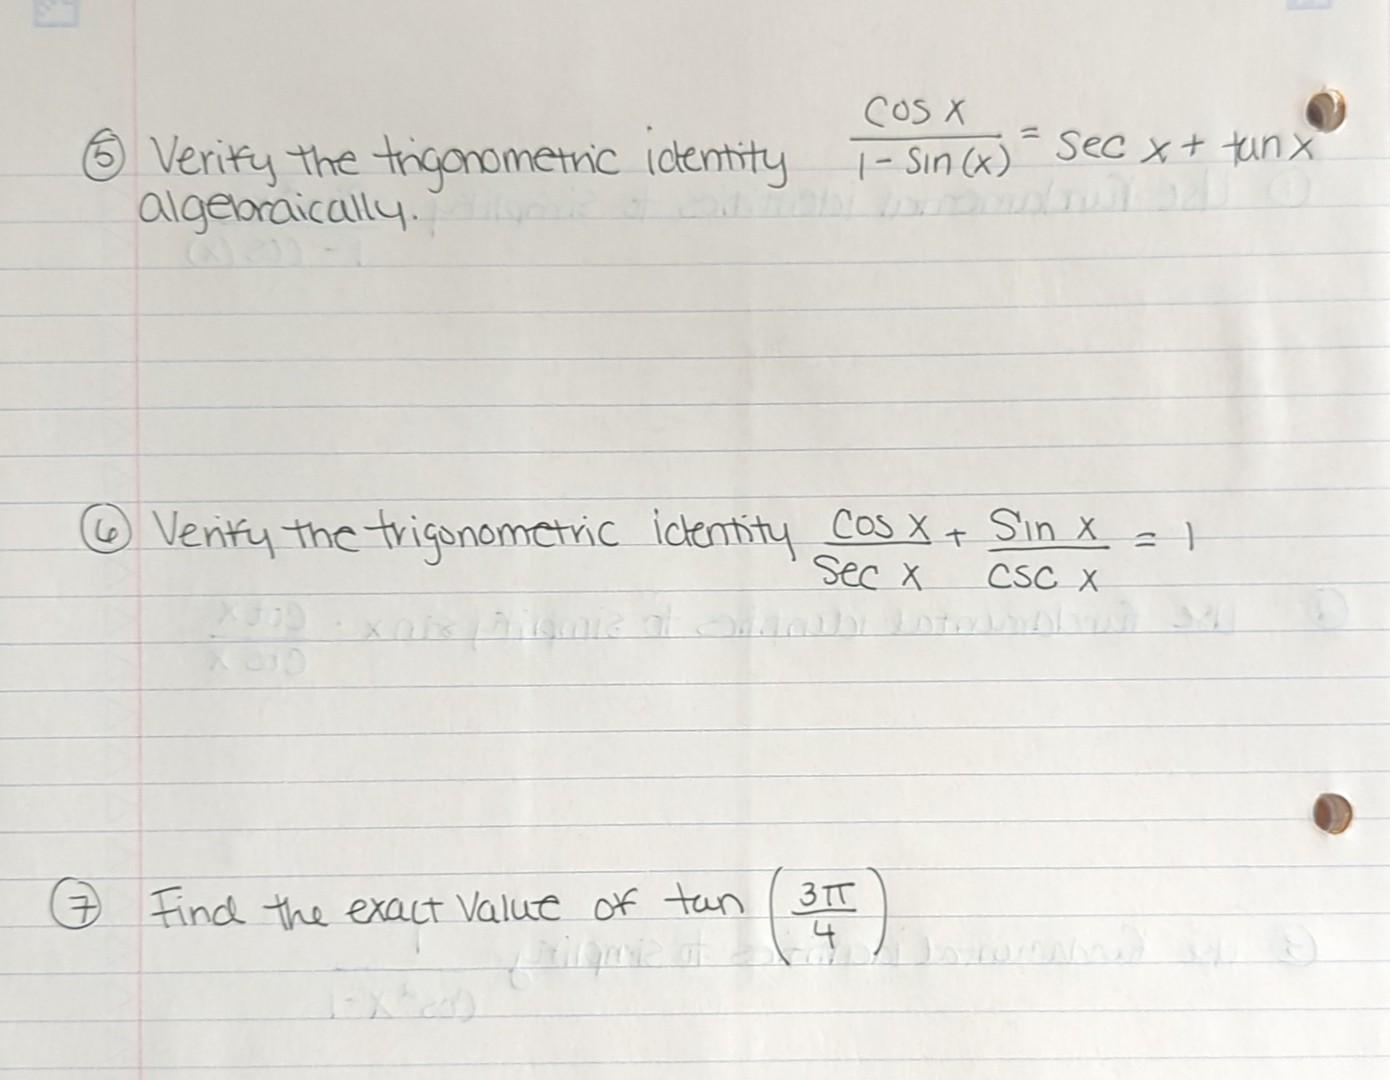 ⑤ Verify the trigonometric identity cos x / 1 - sin(x) = sec x + tan x
algebraically.
⑥ Verify the trigonometric identity cos x / sec x + sin x / csc x = 1
⑦ Find the exact value of tan (3π / 4)